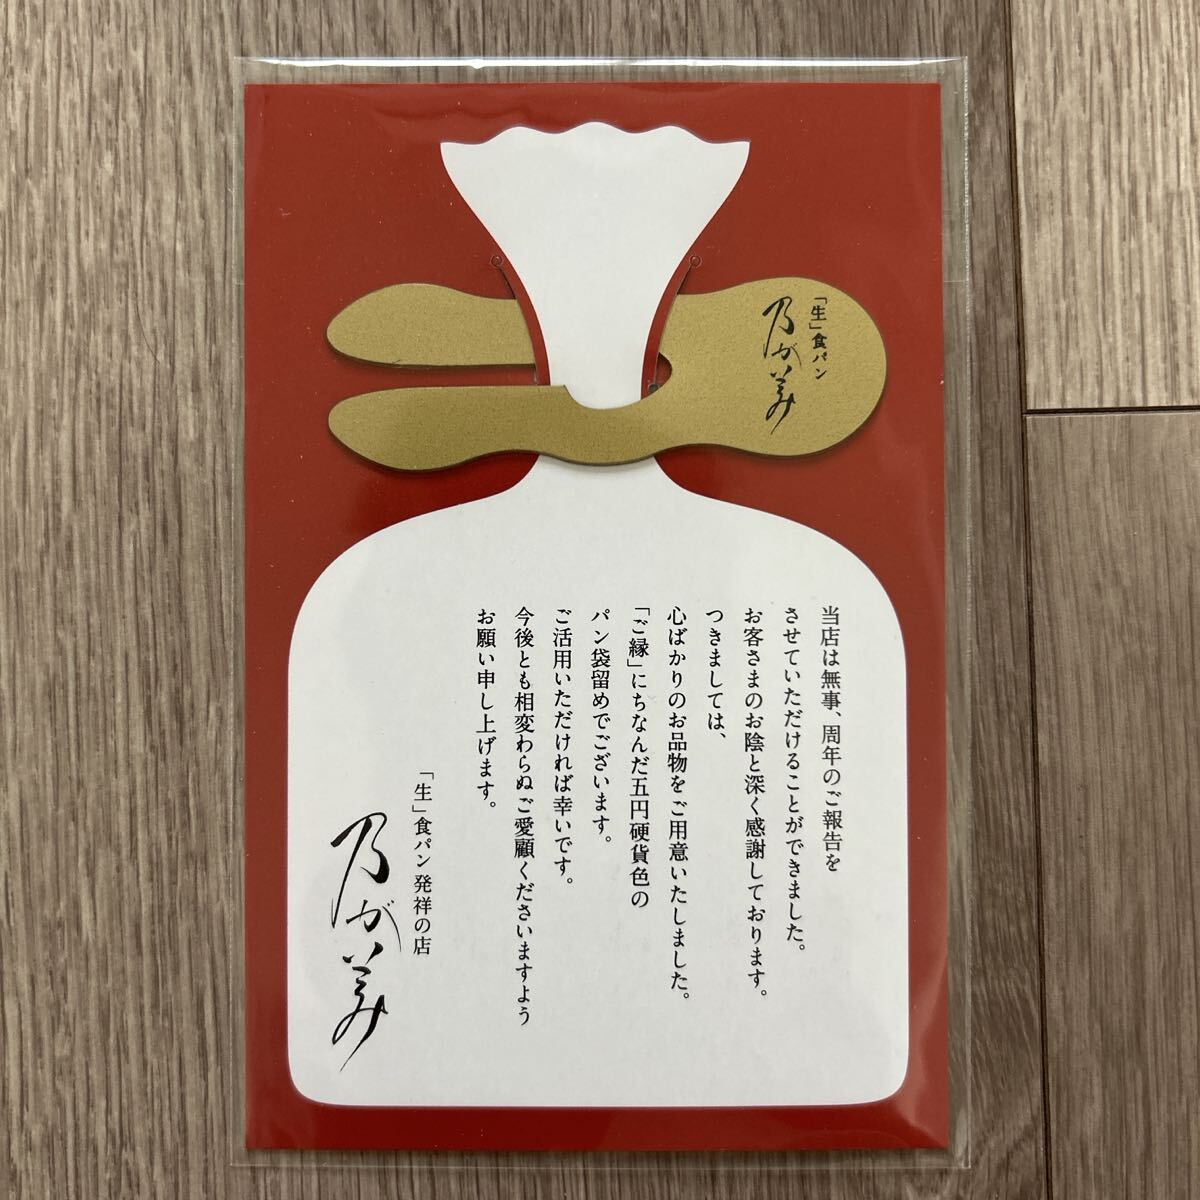 「生」食パン
乃が美
当店は無事、周年のご報告を
させていただけることができました。
お客さまのお陰と深く感謝しております。
つきましては、
心ばかりのお品物をご用意いたしました。
「ご縁」にちなんだ五円硬貨色の
パン袋留めでございます。
ご活用いただければ幸いです。
今後とも相変わらぬご愛顧くださいますよう
お願い申し上げます。
「生」食パン発祥の店
乃が美